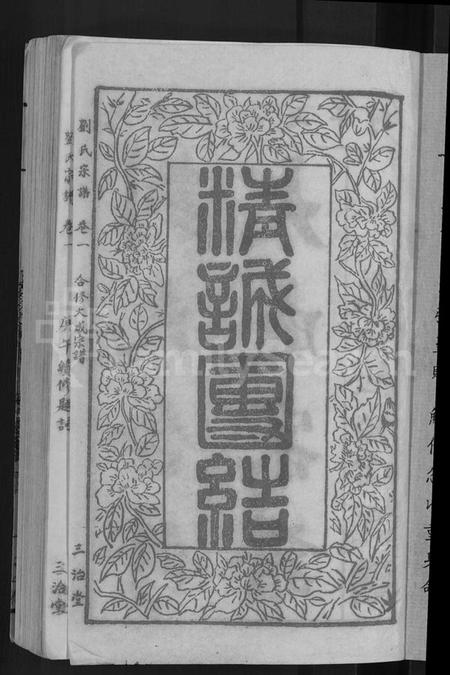 精誠團結
劉氏宗譜 卷一 合修大成宗譜 三治堂
劉氏宗譜 卷一 庚午續修題詞 三治堂